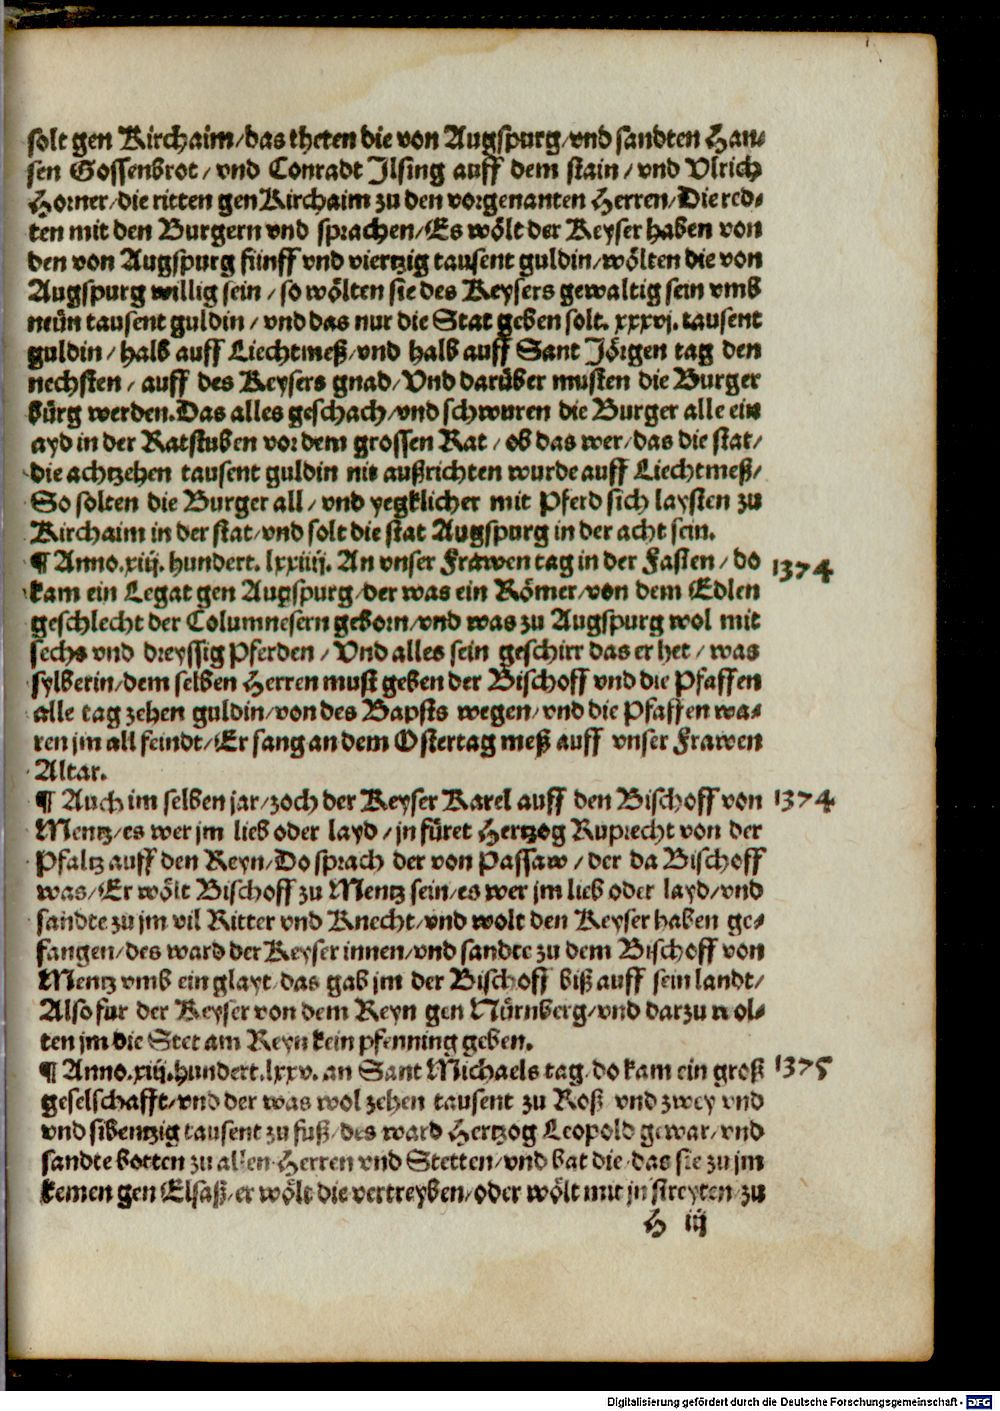 solt gen Kirchaim/das theten die von Augspurg/vnd sandten Han⸗
sen Gossenbrot/vnd Conradt Ilsing auff dem stain/vnd Vlrich
Horner/die ritten gen Kirchaim zu den vorgenanten Herren/Die red⸗
ten mit den Burgern vnd sprachen/Es wölt der Keyser haben von
den von Augspurg fünff vnd viertzig tausent guldin/wölten die von
Augspurg willig sein/so wölten sie des Keysers gewaltig sein vmb
neün tausent guldin/vnd das nur die Stat geben solt. xxxvj. tausent
guldin/halb auff Liechtmeß/vnd halb auff Sant Jörgen tag den
nechsten/auff des Keysers gnad/Vnd darüber musten die Burger
bürg werden.Das alles geschach/vnd schwuren die Burger alle ein
ayd in der Ratstuben vor dem grossen Rat/ob das wer/das die stat/
die achtzehen tausent guldin nit außrichten wurde auff Liechtmeß/
So solten die Burger all/vnd yegklicher mit Pferd sich laysten zu
Kirchaim in der stat/vnd solt die stat Augspurg in der acht sein.
¶ Anno.xiij. hundert. lxxiiij. An vnser Frawen tag in der Fasten/do 1374
kam ein Legat gen Augspurg/der was ein Römer/von dem Edlen
geschlecht der Columnesern geborn/vnd was zu Augspurg wol mit
sechs vnd dreyssig Pferden/Vnd alles sein geschirr das er het/was
sylberin/dem selben Herren must geben der Bischoff vnd die Pfaffen
alle tag zehen guldin/von des Bapsts wegen/vnd die Pfaffen wa⸗
ren jm all feindt/Er sang an dem Ostertag meß auff vnser Frawen
Altar.
¶ Auch im selben jar/zoch der Keyser Karel auff den Bischoff von 1374
Mentz/es wer jm lieb oder layd/jn füret Hertzog Ruprecht von der
Pfaltz auff den Reyn/Do sprach der von Passaw/der da Bischoff
was/Er wölt Bischoff zu Mentz sein/es wer jm lieb oder layd/vnd
sandte zu jm vil Ritter vnd Knecht/vnd wolt den Keyser haben ge⸗
fangen/des ward der Keyser innen/vnd sandte zu dem Bischoff von
Mentz vmb ein glayt/das gab jm der Bischoff biß auff sein landt/
Also fur der Keyser von dem Reyn gen Nürnberg/vnd darzu wol⸗
ten jm die Stet am Reyn kein pfenning geben.
¶ Anno.xiij.hundert.lxxv. an Sant Michaels tag/do kam ein groß 1375
geselschafft/vnd der was wol zehen tausent zu Roß vnd zwey vnd
vnd sibentzig tausent zu fuß/des ward Hertzog Leopold gewar/vnd
sandte botten zu allen Herren vnd Stetten/vnd bat die/das sie zu jm
kemen gen Elsaß/er wölt die vertreyben/oder wölt mit jn streyten zu
H iij
Digitalisierung gefördert durch die Deutsche Forschungsgemeinschaft - DFG